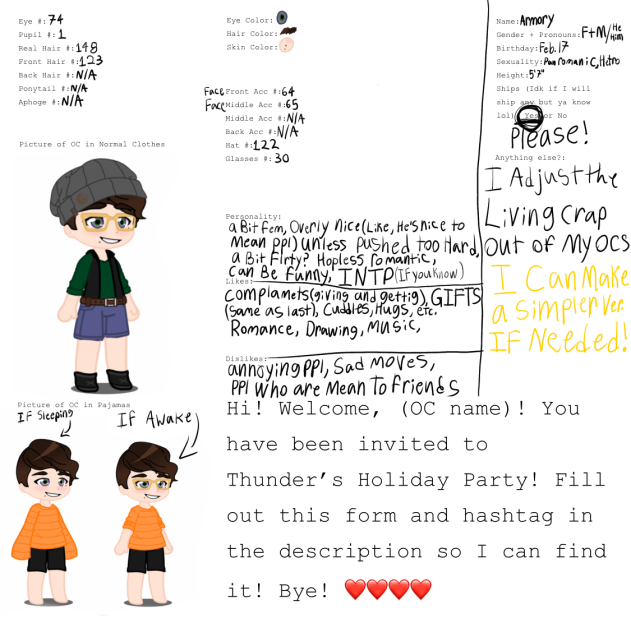 Eye #: 74
Pupil #: 1
Real Hair #: 148
Front Hair #: 123
Back Hair #: N/A
Ponytail #: N/A
Aphoge #: N/A
Picture of OC in Normal Clothes
Picture of OC in Pajamas
IF Sleeping
IF Awake
Eye Color:
Hair Color:
Skin Color:
Face Front Acc #: 64
Face Middle Acc #: 65
Middle Acc #: N/A
Back Acc #: N/A
Hat #: 122
Glasses #: 30
Personality:
a Bit fem, Overly nice(Like, He's nice to
mean ppl) unless pushed too Hard,
a Bit Flrty? Hopless romantic,
can Be funny, INTP (IF you know)
Likes:
complamets(giving and gettig), GIFTS
(same as last), Cuddles, Hugs, etc.
Romance, Drawing, music,
Dislikes:
annoying PPl, Sad moves,
PPl who are mean To friends
Name: Armory
Gender + Pronouns: F+M/He Him
Birthday: Feb. 17
Sexuality: Panromanic, Hetro
Height: 5'7"
Ships (Idk if I will
ship any but ya know
lol) Yes or No
Please!
Anything else?:
I Adjust the
Living crap
out of My OCS
I Can Make
a simpler ver.
IF Needed!
Hi! Welcome, (OC name)! You
have been invited to
Thunder’s Holiday Party! Fill
out this form and hashtag in
the description so I can find
it! Bye! ❤️❤️❤️❤️